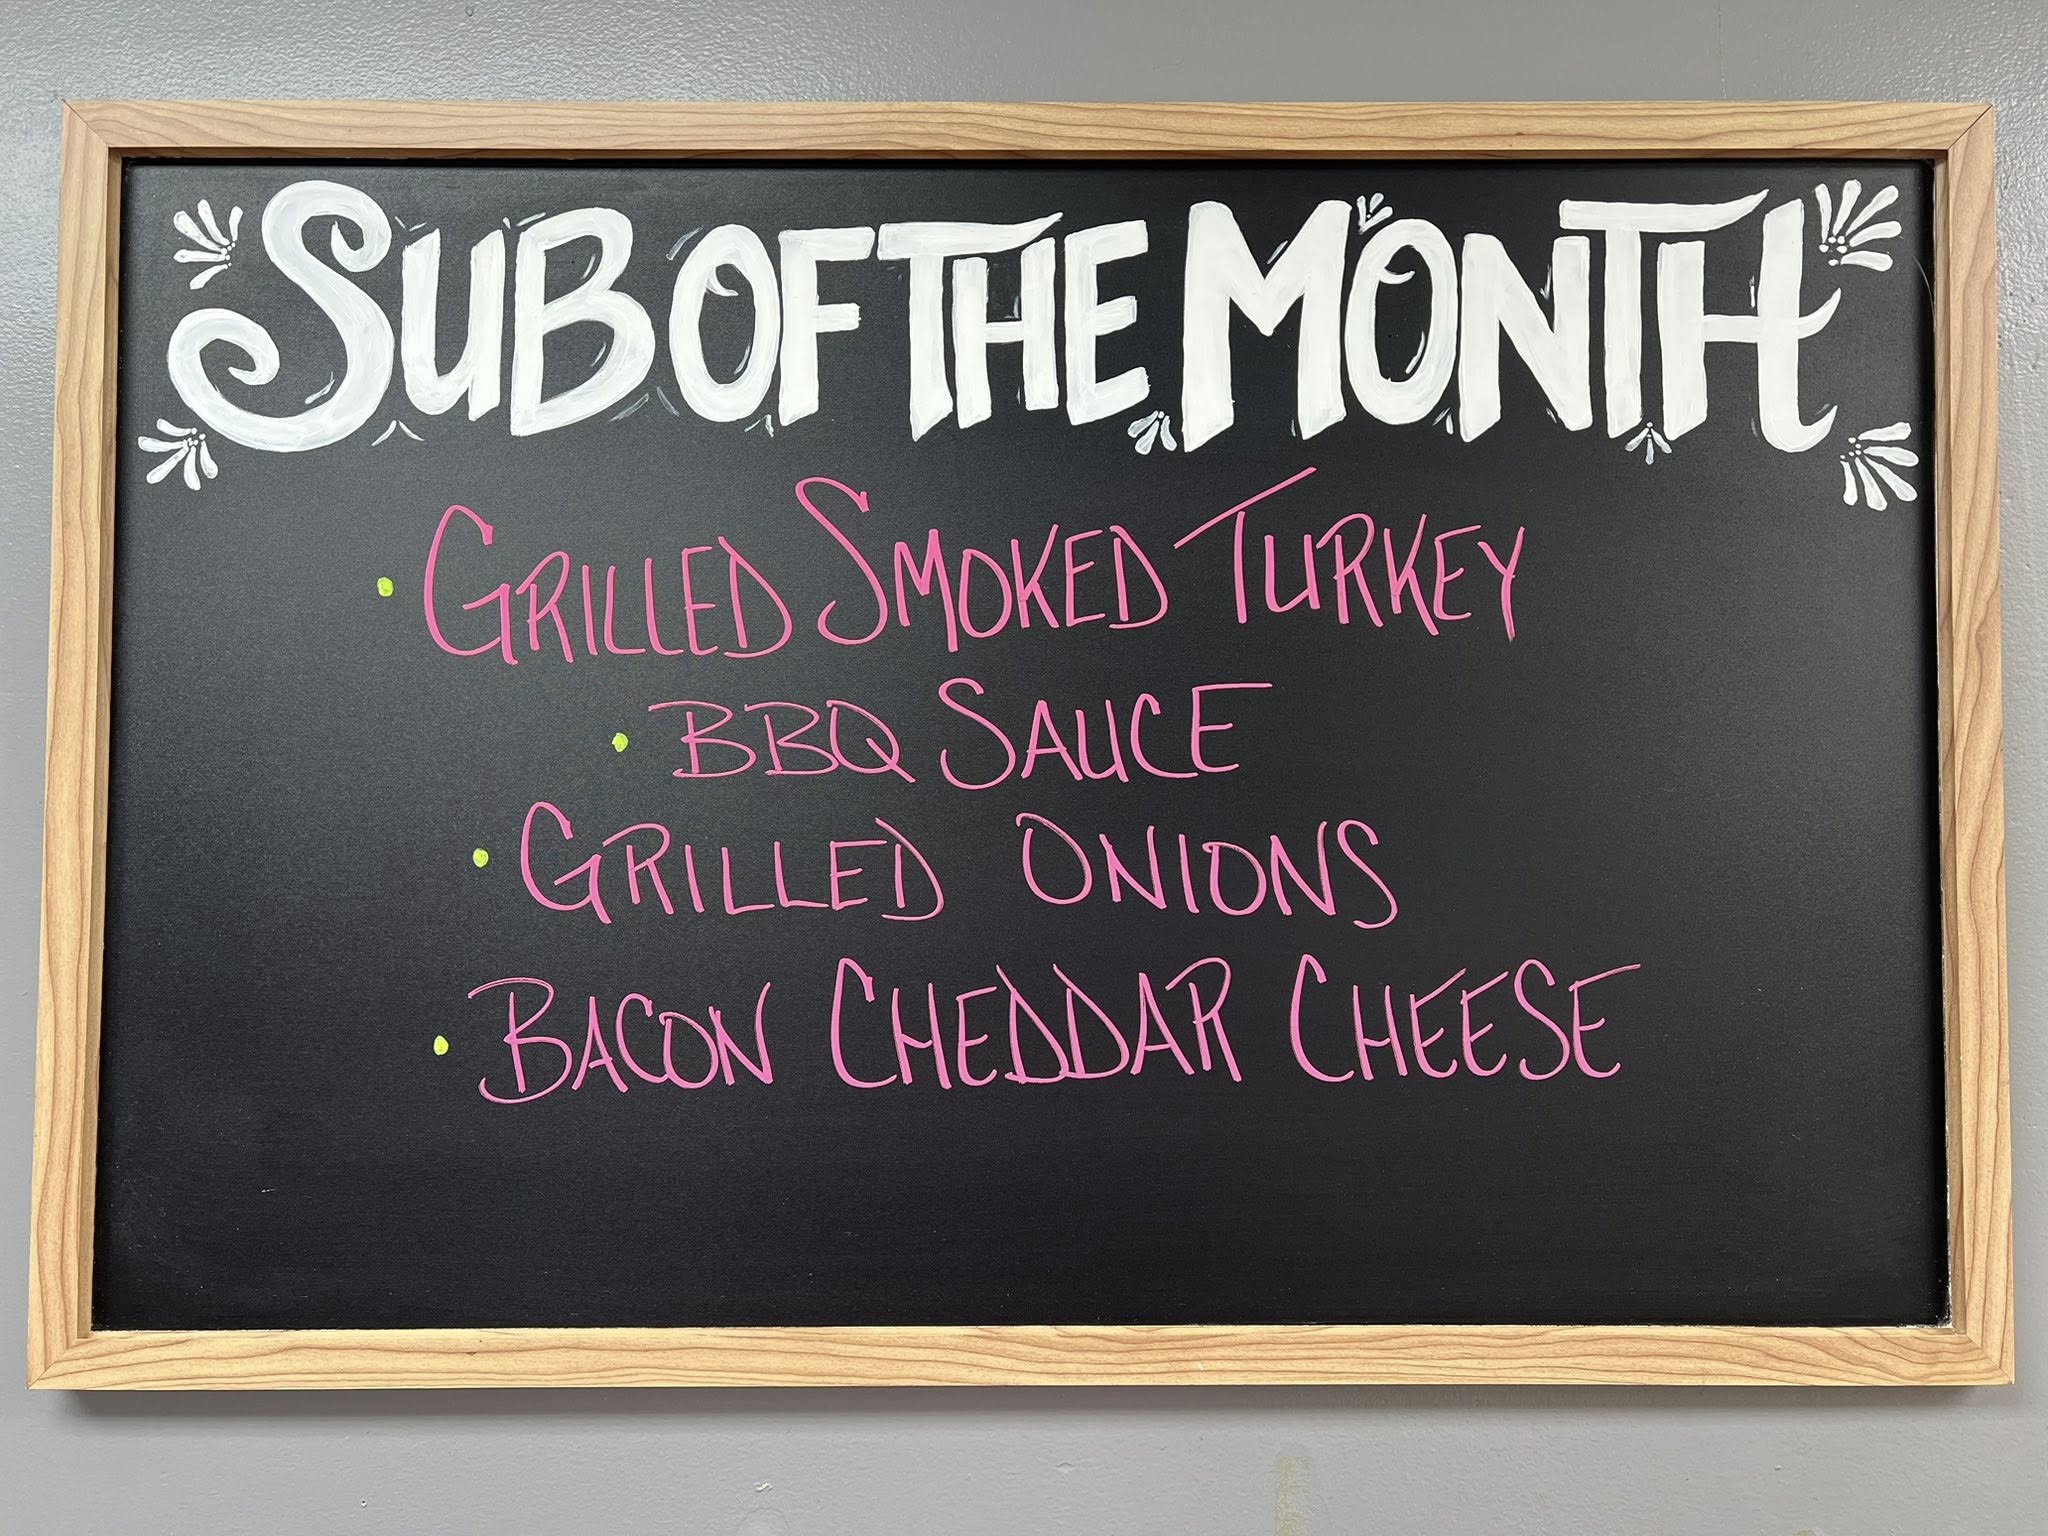 SUB OF THE MONTH
• GRILLED SMOKED TURKEY
• BBQ SAUCE
• GRILLED ONIONS
• BACON CHEDDAR CHEESE